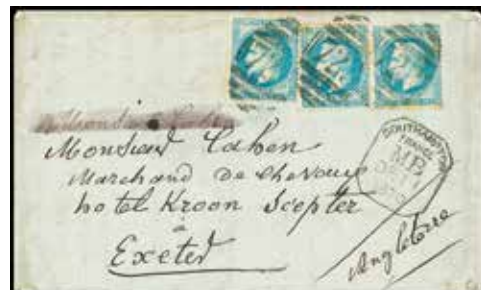 Monsieur Cahen
Marchand de chevaux
hotel Kroon Scepter
a
Exeter
Angleterre
SOUTHAMPTON
FRANCE
M.B.